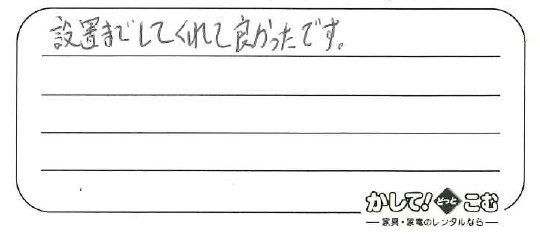 設置までしてくれて良かったです。
かして!どっとこむ
家具・家電のレンタルなら